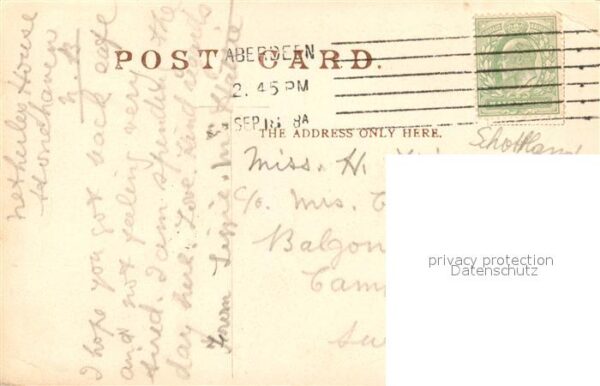 POST CARD.
ABERDEEN
2. 45 PM
SEP 18 8A
THE ADDRESS ONLY HERE.
Schottland
Miss. H.
C/o Mrs.
Balgon
Camp
Netherley House
N.B.
I hope you got back safe
and not feeling very
tired. I am spending the
day here. Love. Kind regards
From Lizzie
privacy protection
Datenschutz